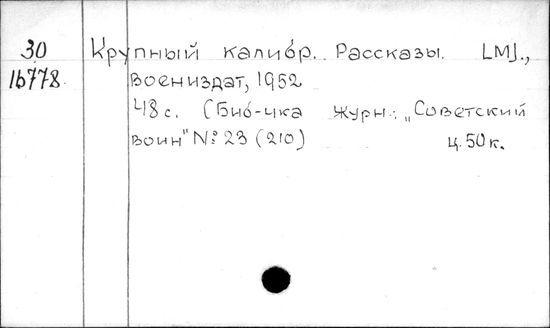 30 Крупный калибр. Рассказы. [М].,
16778 Воениздат, 1952
48 с. (Биб-чка журн.: „Советский
воин" №23 (210) ц. 50 к.